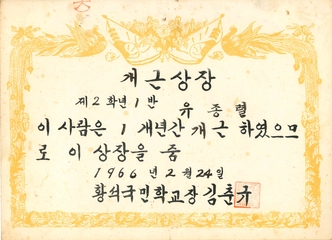 개근상장
제2학년1반
유종렬
이 사람은 1개년간 개근 하였으므
로 이 상장을 줌
1966년 2월 24일
황석국민학교장 김춘규